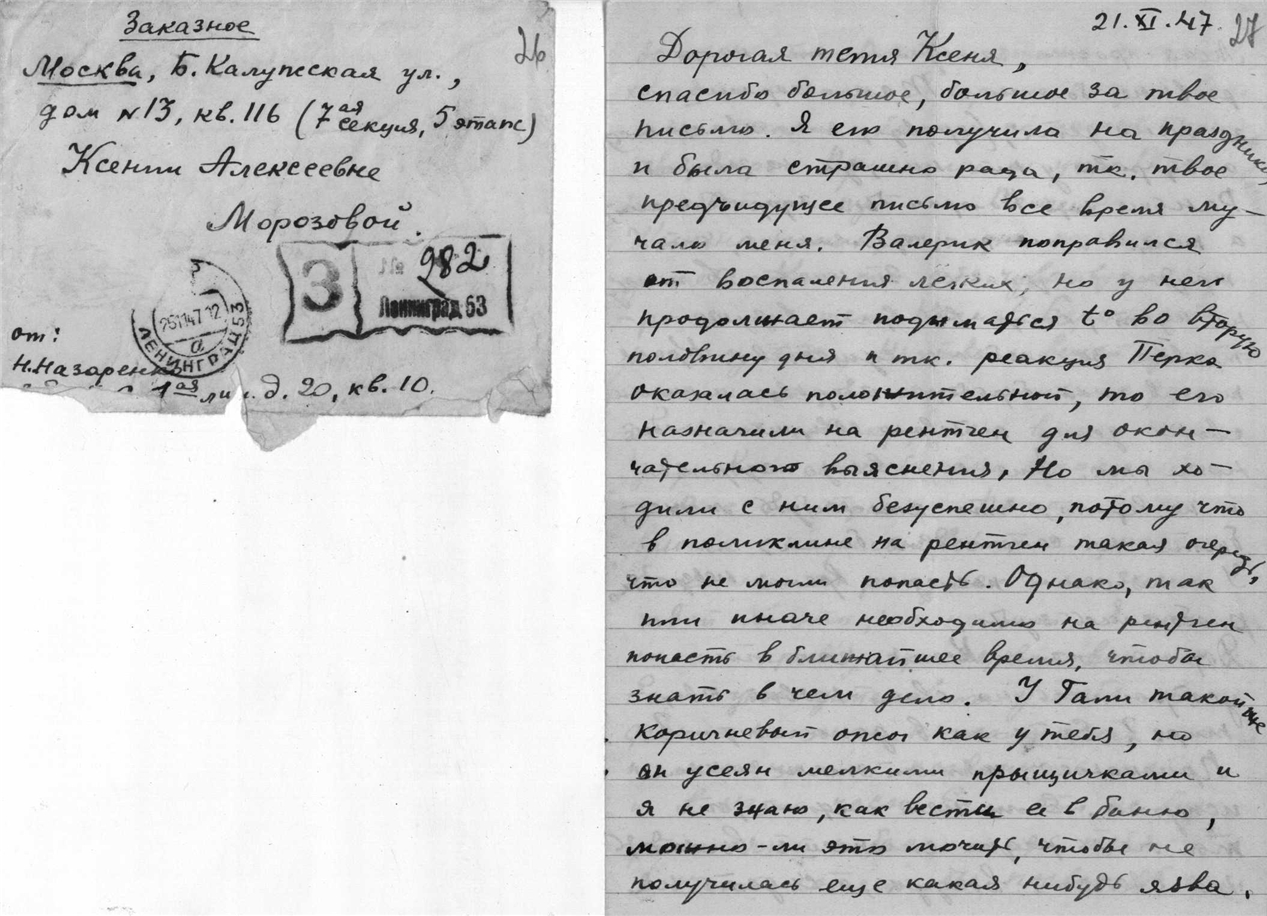 Заказное
26
Москва, Б. Калужская ул.,
дом №13, кв. 116 (7ая секция, 5 этаж)
Ксении Алексеевне
Морозовой.
З
№ 982
Ленинград 53
ЛЕНИНГРАД 53
а
от:
Н. Назаренко
1ая лин. д. 20, кв. 10.
21.XI.47.
27
Дорогая тетя Ксеня,
спасибо большое, большое за твое
письмо. Я его получила на праздники
и была страшно рада, тк. твое
предъидущее письмо все время му-
чало меня. Валерик поправился
от воспаления легких, но у него
продолжает подыматься t° во вторую
половину дня и тк. реакция Перке
оказалась положительной, то его
назначили на рентген для окон-
чательного выяснения. Но мы хо-
дили с ним безуспешно, потому что
в поликлине на рентген такая очередь,
что не могли попасть. Однако, так
или иначе необходимо на рентген
попасть в ближайшее время, чтобы
знать в чем дело. У Гали такой же
коричневый ожог как у тебя, но
он усеян мелкими прыщичками и
я не знаю, как вести ее в баню,
можно-ли это мочить, чтобы не
получилась еще какая нибудь язва.